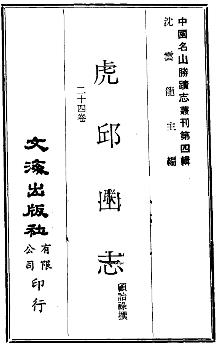 中國名山勝蹟志叢刊第四輯
沈雲龍主編
虎邱山志
二十四卷
顧詒祿撰
文海出版社有限公司印行